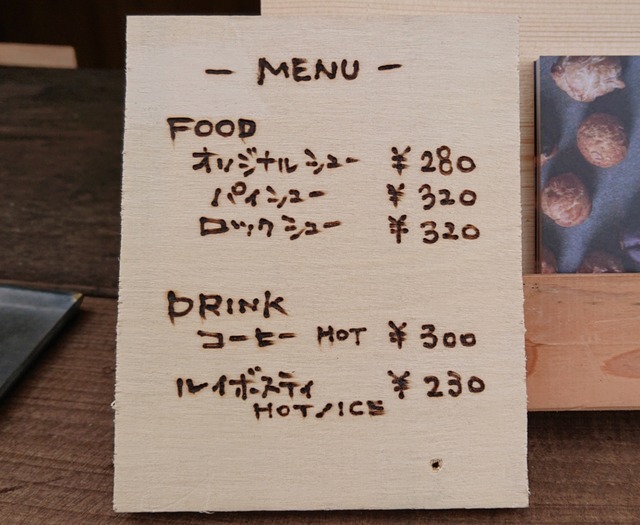 — MENU —
FOOD
オリジナルシュー ¥280
パイシュー ¥320
ロックシュー ¥320
DRINK
コーヒー HOT ¥300
ルイボスティ ¥230
HOT/ICE